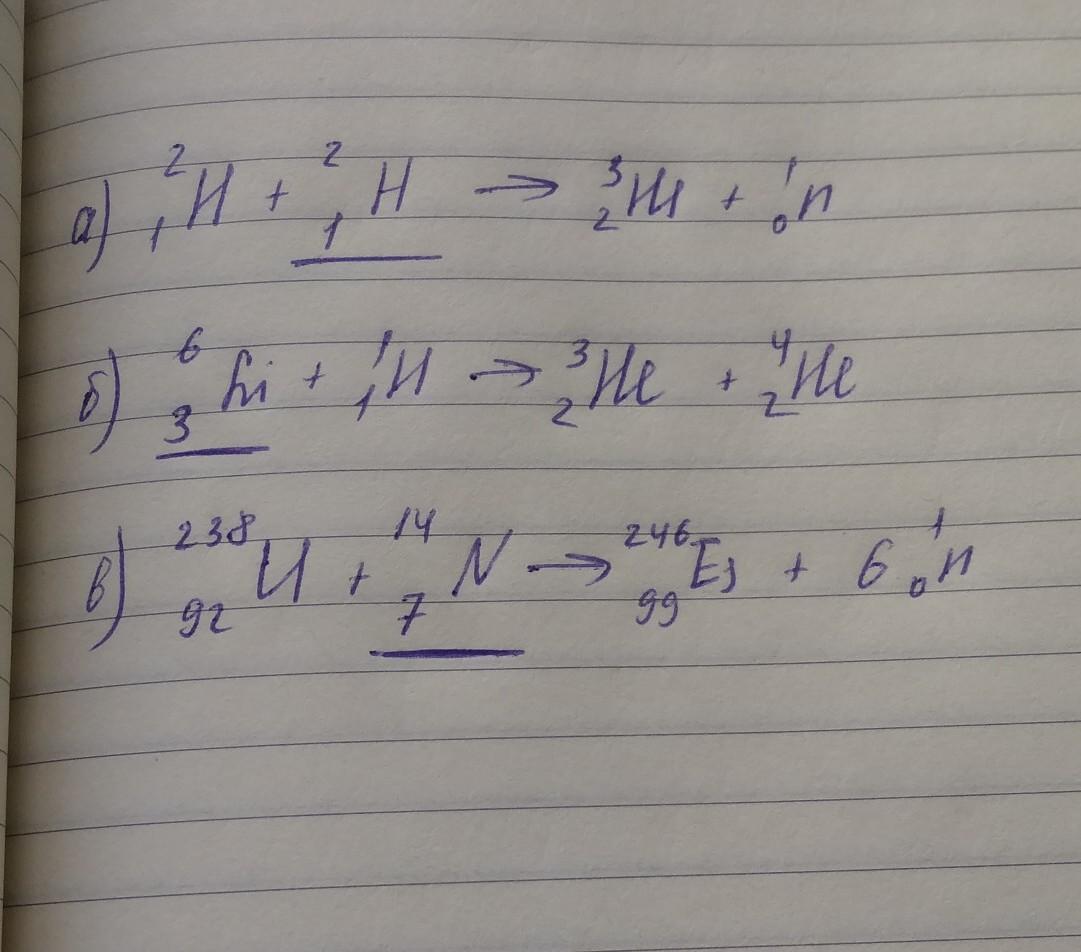 а) ²₁H + ²₁H → ³₂He + ¹₀n
б) ⁶₃Li + ¹₁H → ³₂He + ⁴₂He
в) ²³⁸₉₂U + ¹⁴₇N → ²⁴⁶₉₉Es + 6 ¹₀n